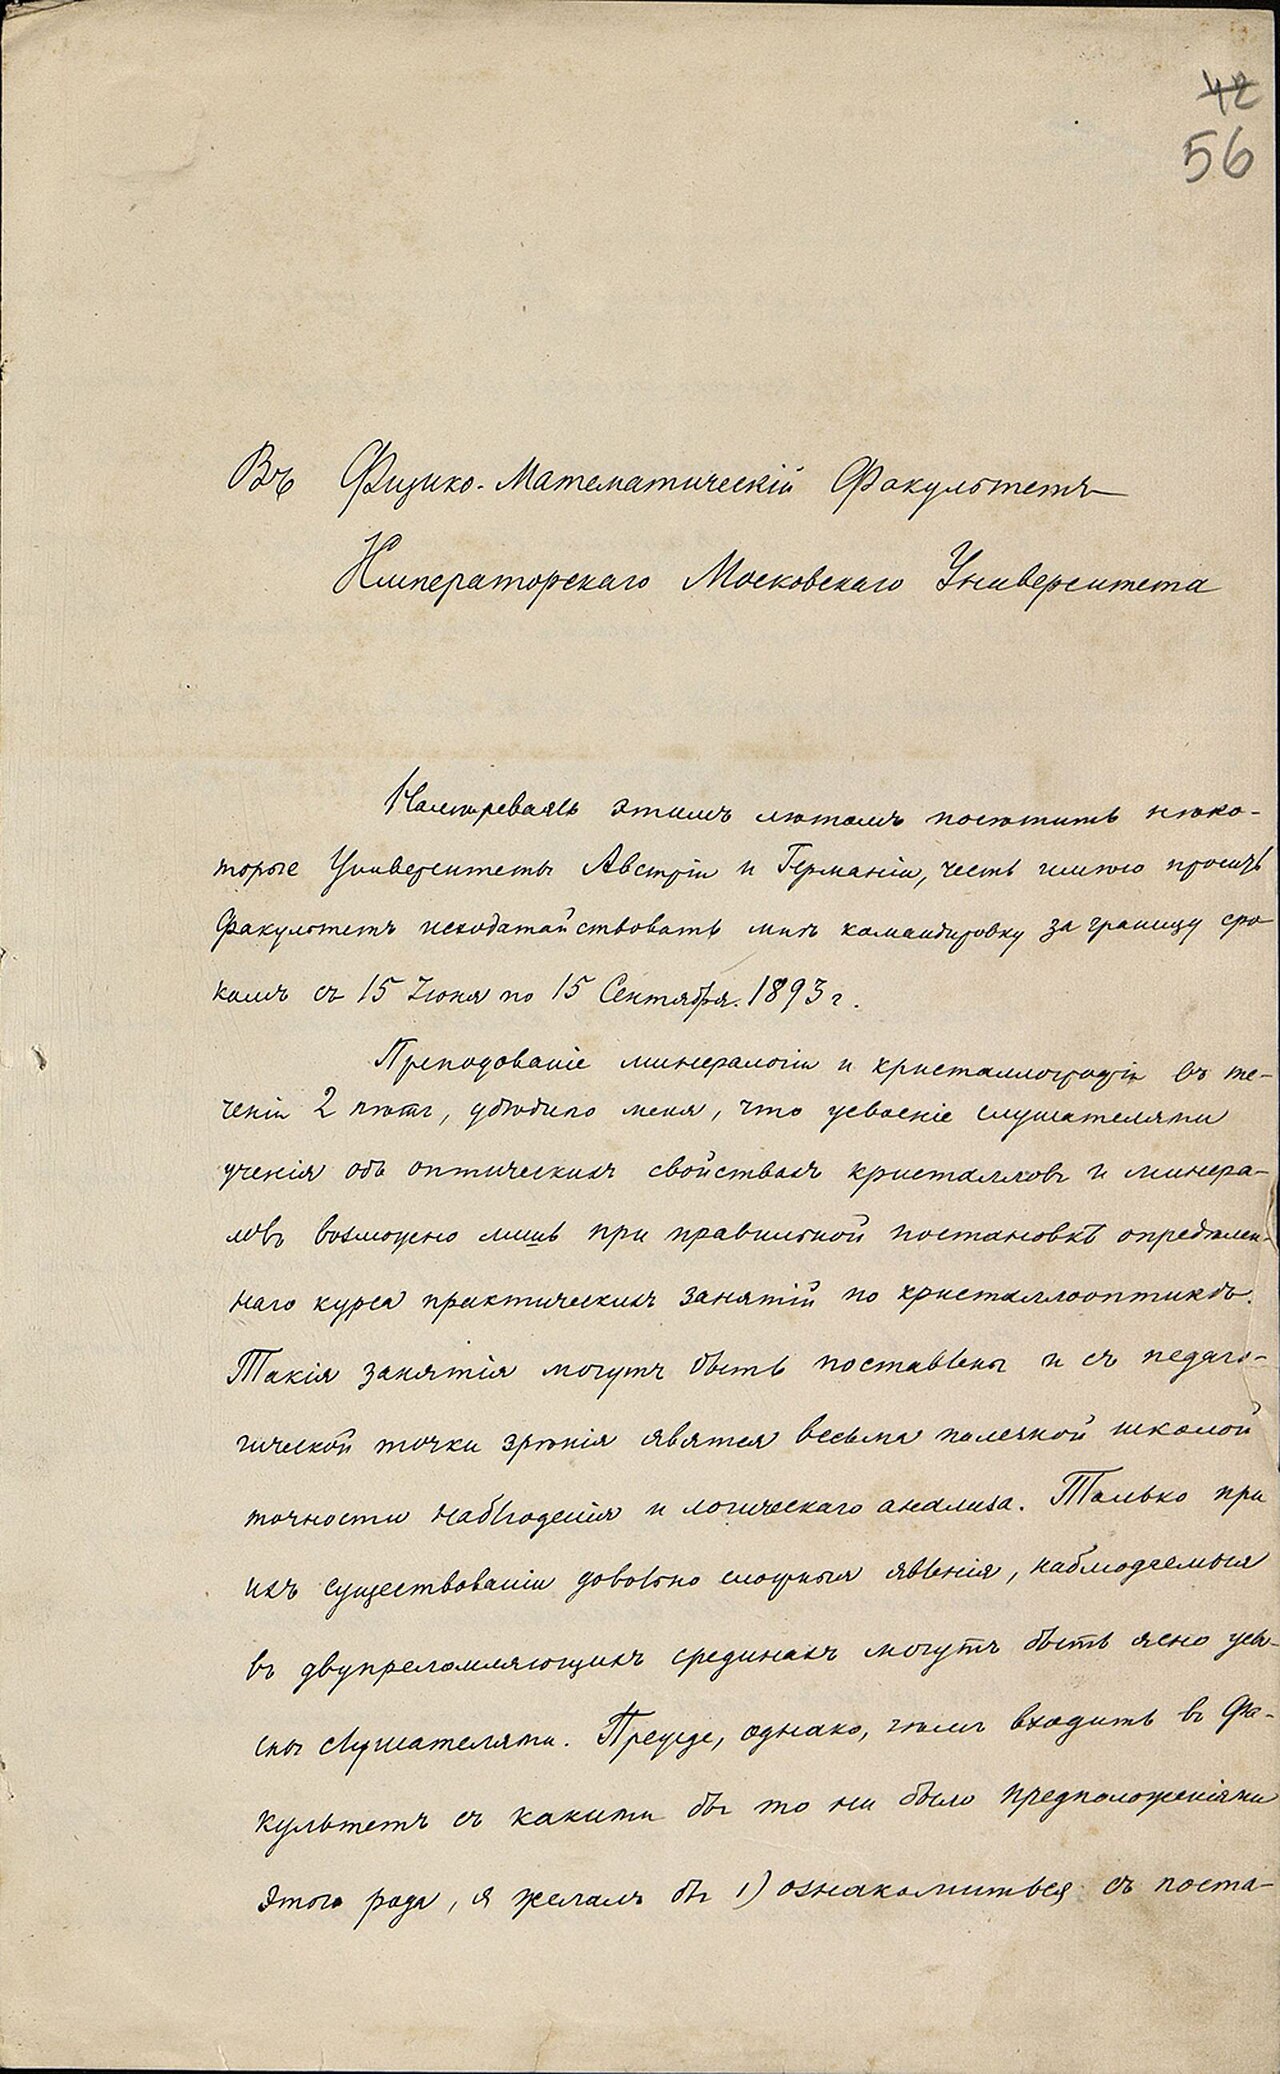 42
56
Въ Физико-Математическій Факультетъ
Императорскаго Московскаго Университета
Намѣреваясь этимъ лѣтомъ посѣтить нѣко-
торые Университеты Австріи и Германіи, честь имѣю просить
Факультетъ исходатайствовать мнѣ командировку за границу сро
комъ съ 15 Іюня по 15 Сентября 1893 г.
Преподованіе минералогіи и кристаллографіи въ те-
ченіи 2 лѣтъ, убѣдило меня, что усвоеніе слушателями
ученія объ оптическихъ свойствахъ кристалловъ и минера-
ловъ возможно лишь при правильной постановкѣ опредѣлен-
наго курса практическихъ занятій по кристаллооптикѣ.
Такія занятія могутъ быть поставлены и съ педаго-
гической точки зрѣнія явятся весьма полезной школой
точности наблюденія и логическаго анализа. Только при
ихъ существованіи довольно сложныя явленія, наблюдаемыя
въ двупреломляющихъ срединахъ могутъ быть ясно усво-
ены слушателями. Прежде, однако, чѣмъ входить въ Фа-
культетъ съ какими бы то ни было предположеніями
этого рода, я желалъ бы 1) ознакомиться съ поста-